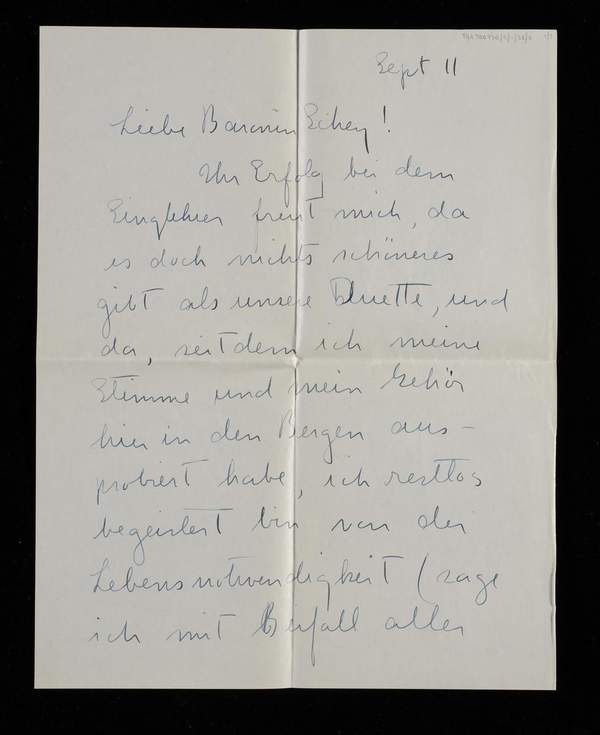 Sept 11
Liebe Baronin Eckey!
Ihr Erfolg bei dem
Singlehrer freut mich, da
es doch nichts schöneres
gibt als unsere Duette, und
da, seitdem ich meine
Stimme und mein Gehör
hier in den Bergen aus-
probiert habe, ich restlos
begeistert bin von der
Lebensnotwendigkeit (sage
ich mit Beifall aller